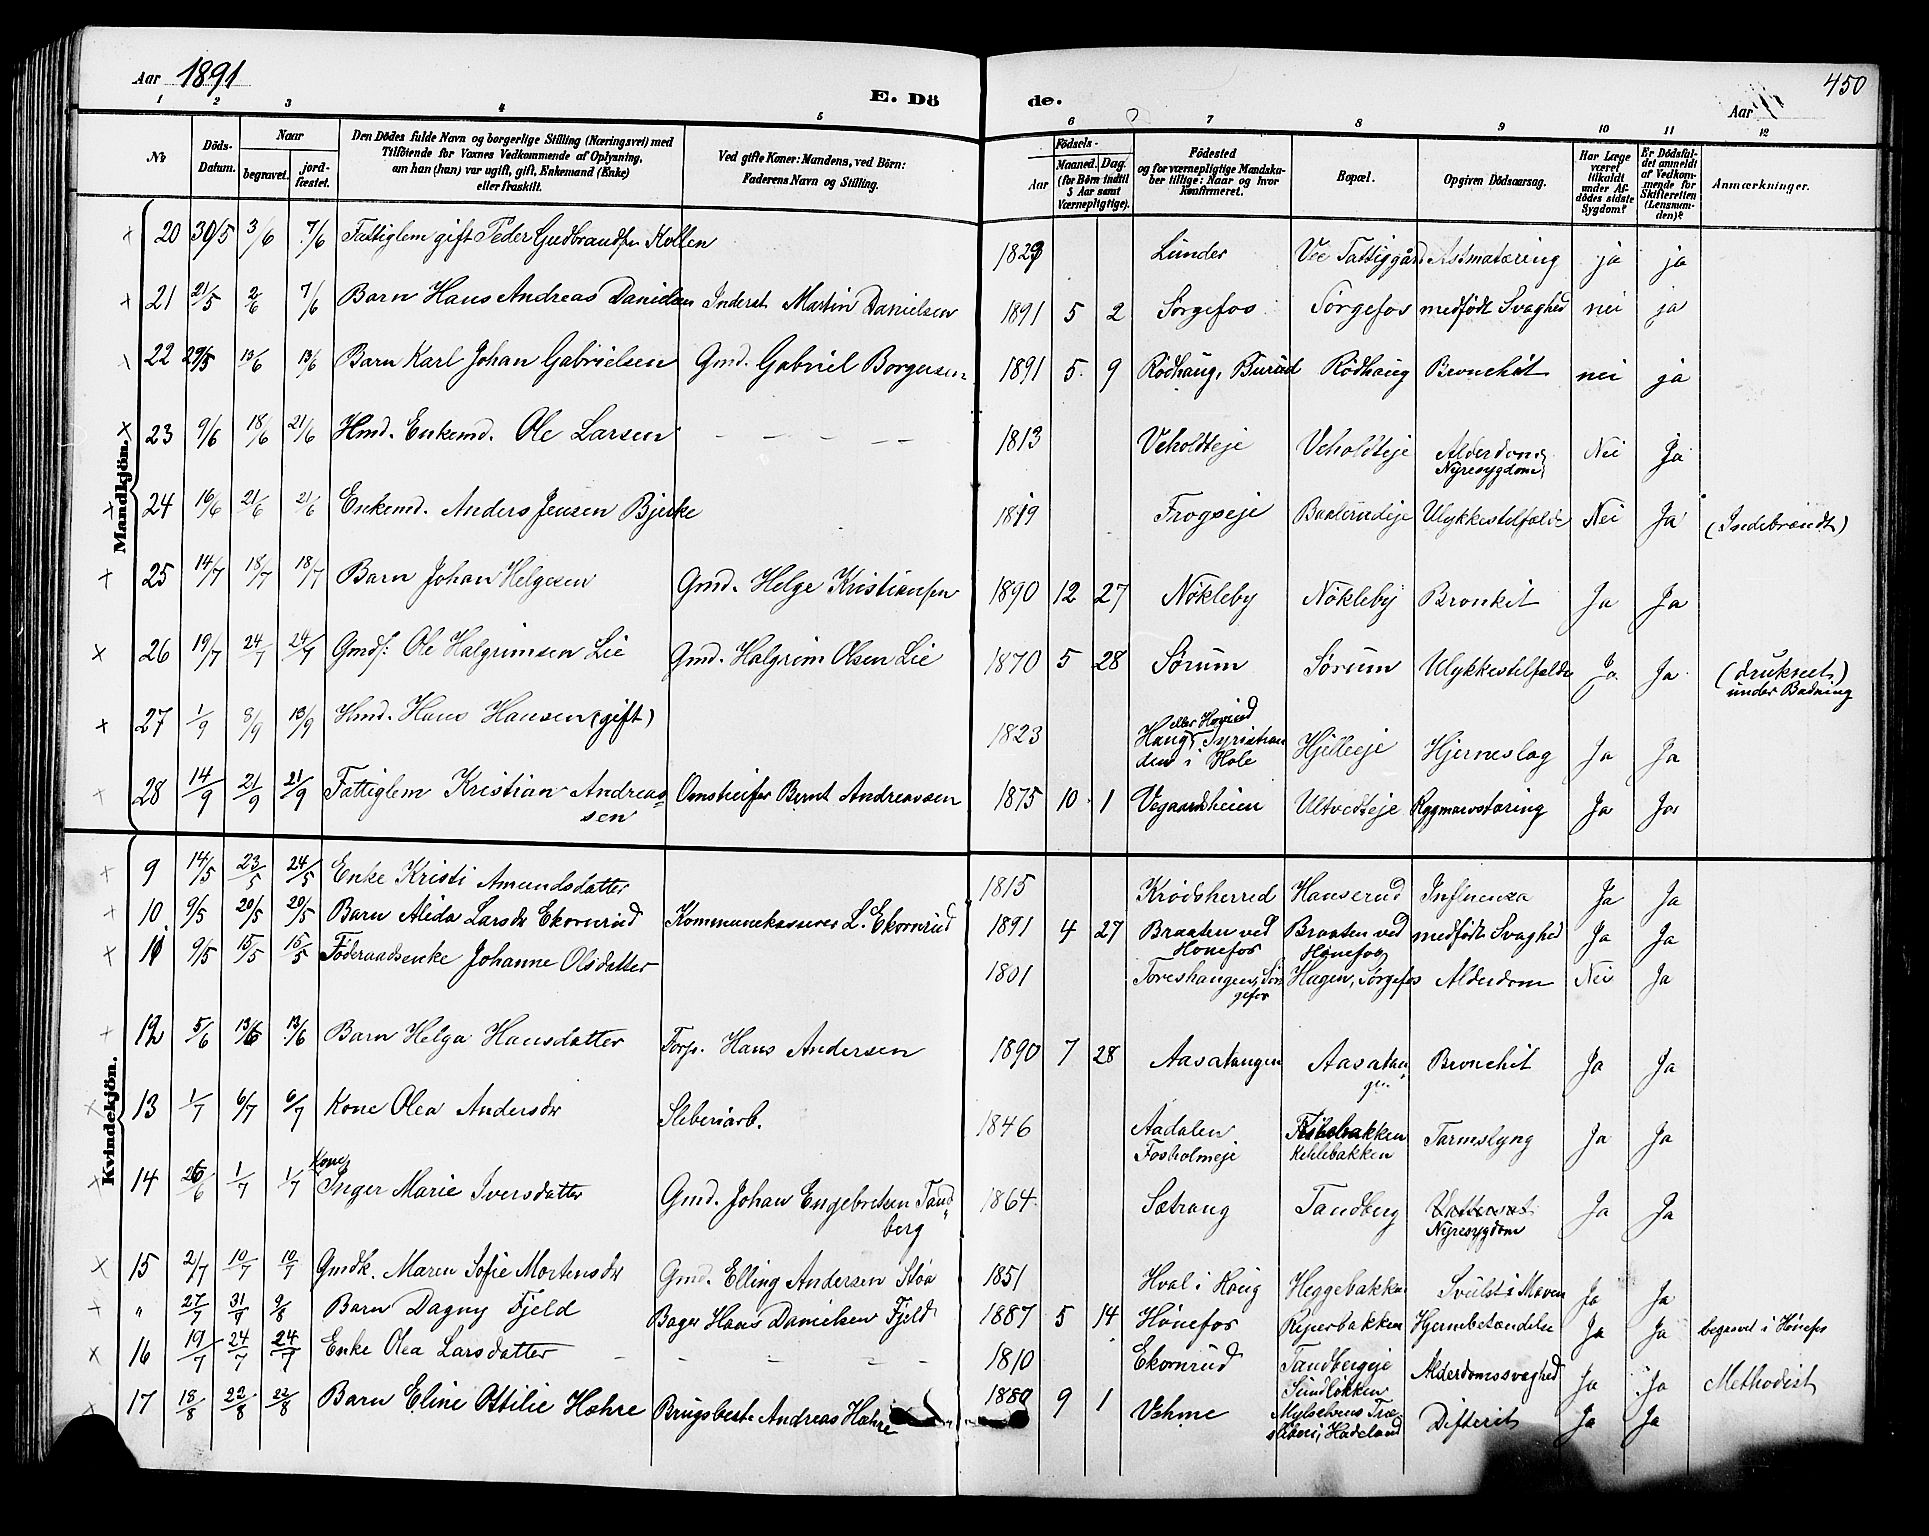 Aar 1891
E. Dö de.
Aar
450
1 2 3 4 5 6 7 8 9 10 11 12
No
Döds-Datum.
Naar
begravet.
jord-fæstet.
Den Dödes fulde Navn og borgerlige Stilling (Næringsvei) med
Tilföiende for Voxnes Vedkommende af Oplysning,
om han (hun) var ugift, gift, Enkemand (Enke)
eller fraskilt.
Ved gifte Koner: Mandens, ved Börn:
Faderens Navn og Stilling.
Födsels-
Aar
Maaned. Dag.
(for Börn indtil
5 Aar samt
Værnepligtige).
Födested
og for værnepligtige Mandska-
ber tillige: Naar og hvor
konfirmeret.
Bopæl.
Opgiven Dödsaarsag.
Har Læge
været
tilkaldt
under Af-
dödes sidste
Sygdom?
Er Dödsfal-
det anmeldt
af Vedkom-
mende for
Skifteretten
(Lensman-
den)?
Anmærkninger.
Mandkjön.
20 30/5 3/6 7/6 Fattiglem gift Peder Gudbrandsen Kollen 1829 Lunder Vee Fattiggård Astmatæring ja ja
21 21/5 2/6 7/6 Barn Hans Andreas Danielsen Inderst Martin Danielsen 1891 5 2 Sørgefos Sørgefos medfødt Svaghed nei ja
22 29/5 13/6 13/6 Barn Karl Johan Gabrielsen Gmd. Gabriel Borgersen 1891 5 9 Rødhaug, Burud Rødhaug Bronchit nei ja
23 9/6 18/6 21/6 Hmd. Enkemd. Ole Larsen — — — — — 1813 Veholdteje Veholdteje Alderdom, Nei Ja
Nyresygdom
24 16/6 21/6 21/6 Enkemd. Anders Jensen Bjerke 1819 Frogseje Ulykkestilfælde Nei Ja (Indebrændt)
25 14/7 18/7 18/7 Barn Johan Helgesen Gmd. Helge Kristiansen 1890 12 27 Nøkleby Nøkleby Bronkit Ja Ja
26 19/7 24/7 24/7 Gmds: Ole Halgrimsen Lie Gmd. Halgrim Olsen Lie 1870 5 28 Sørum Sørum Ulykkestilfælde Ja Ja (druknet)
under Badning
27 1/9 8/9 13/9 Hmd. Hans Hansen (gift) 1823 Haug eller Hovind Tyristran
den i Hole Hjelleeje Hjerneslag Ja Ja
28 14/9 21/9 21/9 Fattiglem Kristian Andreas
sen Omstreifer Bernt Andreassen 1875 10 1 Vegaardsheien Ultvedteje Rygmarvstæring Ja Ja
Kvindekjön.
9 14/5 23/5 24/5 Enke Kristi Amundsdatter 1815 Krødsherred Hanserud Influenza Ja Ja
10 9/5 20/5 20/5 Barn Alida Larsdr Ekornrud Kommunekasserer L. Ekornrud 1891 4 27 Braaten ved Braaten ved medfødt Svaghed Ja Ja
Hønefos Hønefos
11 9/5 15/5 15/5 Föderaadsenke Johanne Olsdatter 1801 Toreshaugen, Sør Hagen, Sørgefos Alderdom Nei Ja
gefos
12 5/6 13/6 13/6 Barn Helga Hansdatter Torp. Hans Andersen 1890 7 28 Aasatangen Aasatan
gen Bronchit Ja Ja
13 1/7 6/7 6/7 Kone Olea Andersdr Sliberiarb. 1846 Aadalen
Fosholmeje Kihlebakken Tarmslyng Ja Ja
14 26/6 1/7 1/7 Kone
Inger Marie Iversdatter Gmd. Johan Engebretsen Tand
berg 1864 Sætrang Tandberg Vattersot
Nyresygdom Ja Ja
15 2/7 10/7 10/7 Gmdk. Maren Sofie Mortensdr Gmd. Elling Andersen Stöa 1851 Hval i Haug Heggebakken Svulst i Maven Ja Ja
" 27/7 31/7 2/8 Barn Dagny Fjeld Bager Hans Danielsen Fjeld 1887 5 14 Hønefos Reperbakken Hjernebetændelse Ja Ja begravet i Hönefos
16 19/7 24/7 24/7 Enke Olea Larsdatter — — — — 1810 Ekornrud Tandbergeje Alderdomssvaghed Ja Ja
17 18/8 22/8 22/8 Barn Eline Ottilie Hæhre Brugsbest. Andreas Hæhre 1880 9 1 Vehme Sundløkken
Træ
sliberi, Hadeland Difterit Ja Ja Methodist